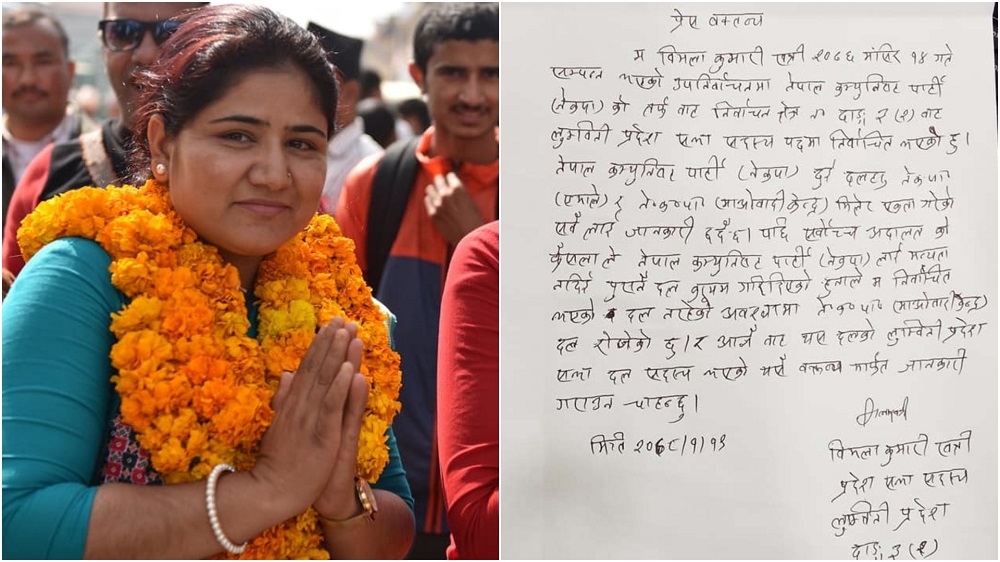 प्रेस वक्तव्य
म विमला कुमारी खत्री २०७६ मंसिर १४ गते
सम्पन्न भएको उपनिर्वाचनमा नेपाल कम्युनिष्ट पार्टी
(नेकपा) को तर्फ बाट निर्वाचन क्षेत्र नं दाङ ३ (२) बाट
लुम्बिनी प्रदेश सभा सदस्य पदमा निर्वाचित भएको हु।
नेपाल कम्युनिष्ट पार्टी (नेकपा) दुई दलहरु नेकपा
(एमाले) र ने.क.पा (माओवादी केन्द्र) मिलेर एकता गरेको
सर्वै लाई जानकारी छ। पछि सर्वोच्च अदालत को
फैसला ले नेपाल कम्युनिष्ट पार्टी (नेकपा) लाई मान्यता
नदिई पुरानै दल कायम गरिदिएको हुनाले म निर्वाचित
भएको दल नरहेको अवस्थामा ने.क.पा (माओवादी केन्द्र)
दल रोजेको छु। र आजै बाट यस दलको लुम्बिनी प्रदेश
सभा दल सदस्य भएको यसै वक्तव्य मार्फत जानकारी
गराउन चाहन्छु।
मिति २०७८/१/१३
विमला कुमारी खत्री
प्रदेश सभा सदस्य
लुम्बिनी प्रदेश
दाङ ३ (२)